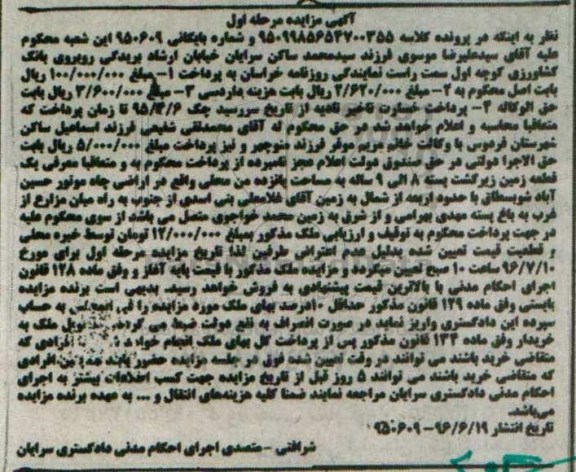 آگهی مزایده مرحله اول
نظر به اینکه در پرونده کلاسه ۹۵۰۹۹۸۵۶۵۳۷۰۰۳۵۵ و شماره بایگانی ۹۵۰۶۰۹ این شعبه محکوم
علیه آقای سیدعلیرضا موسوی فرزند سیدمحمد ساکن سرایان خیابان ارشاد بریدگی روبروی بانک
کشاورزی کوچه اول سمت راست نمایندگی روزنامه خراسان به پرداخت ۱- مبلغ ۱۰۰/۰۰۰/۰۰۰ ریال
بابت اصل محکوم به ۲- مبلغ ۲/۶۲۰/۰۰۰ ریال بابت هزینه دادرسی ۳- مبلغ ۳/۶۰۰/۰۰۰ ریال بابت
حق الوکاله ۴- پرداخت خسارت تاخیر تادیه از تاریخ سررسید چک ۹۵/۴/۶ تا زمان پرداخت که
متعاقبا محاسبه و اعلام خواهد شد در حق محکوم له آقای محمدتقی شفیعی فرزند اسماعیل ساکن
شهرستان فردوس با وکالت خانم مریم موقر فرزند منوچهر و نیز پرداخت مبلغ ۵/۰۰۰/۰۰۰ ریال بابت
حق الاجرا دولتی در حق صندوق دولت اعلام عجز نامبرده از پرداخت محکوم به و متعاقبا معرفی یک
قطعه زمین زیرکشت پسته ۸ الی ۹ ساله به مساحت پانزده من محلی واقع در اراضی چاه موتور حسین
آباد شویسطاق با حدود اربعه از شمال به زمین آقای غلامعلی بنی اسدی از جنوب به راه میان مزارع از
غرب به باغ پسته مهدی بهرامی و از شرق به زمین محمد خواجوی متصل می باشد از سوی محکوم علیه
در جهت پرداخت محکوم به توقیف و ارزیابی ملک مذکور بمبلغ ۱۲/۰۰۰/۰۰۰ تومان توسط خبره محلی
و قطعیت قیمت تعیین شده بدلیل عدم اعتراض طرفین لذا تاریخ مزایده مرحله اول برای مورخ
۹۶/۷/۱۰ ساعت ۱۰ صبح تعیین میگردد و مزایده ملک مذکور با قیمت پایه آغاز و وفق ماده ۱۲۸ قانون
اجرای احکام مدنی با بالاترین قیمت پیشنهادی به فروش خواهد رسید. بدیهی است برنده مزایده
بایستی وفق ماده ۱۲۹ قانون مذکور حداقل ۱۰درصد بهای ملک مورد مزایده را فی المجلس به حساب
سپرده این دادگستری واریز نماید در صورت انصراف به نفع دولت ضبط می گردد. تحویل ملک به
خریدار وفق ماده ۱۳۴ قانون مذکور پس از پرداخت کل بهای ملک انجام خواهد شد. افرادی که
متقاضی خرید باشند می توانند در وقت تعیین شده فوق در جلسه مزایده حضور یابند افرادی
که متقاضی خرید باشند می توانند ۵ روز قبل از تاریخ مزایده جهت کسب اطلاعات بیشتر به اجرای
احکام مدنی دادگستری سرایان مراجعه نمایند ضمنا کلیه هزینه‌های انتقال و ... به عهده برنده مزایده
می‌باشد.
تاریخ انتشار ۹۶/۶/۱۹- ۹۵۰۶۰۹
شرافتی - متصدی اجرای احکام مدنی دادگستری سرایان